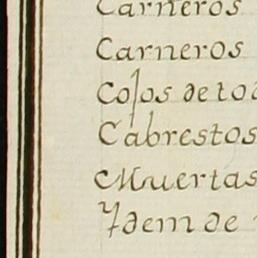 Carneros
Carneros
Cojos de to
Cabrestos
Muertas
Ydem de